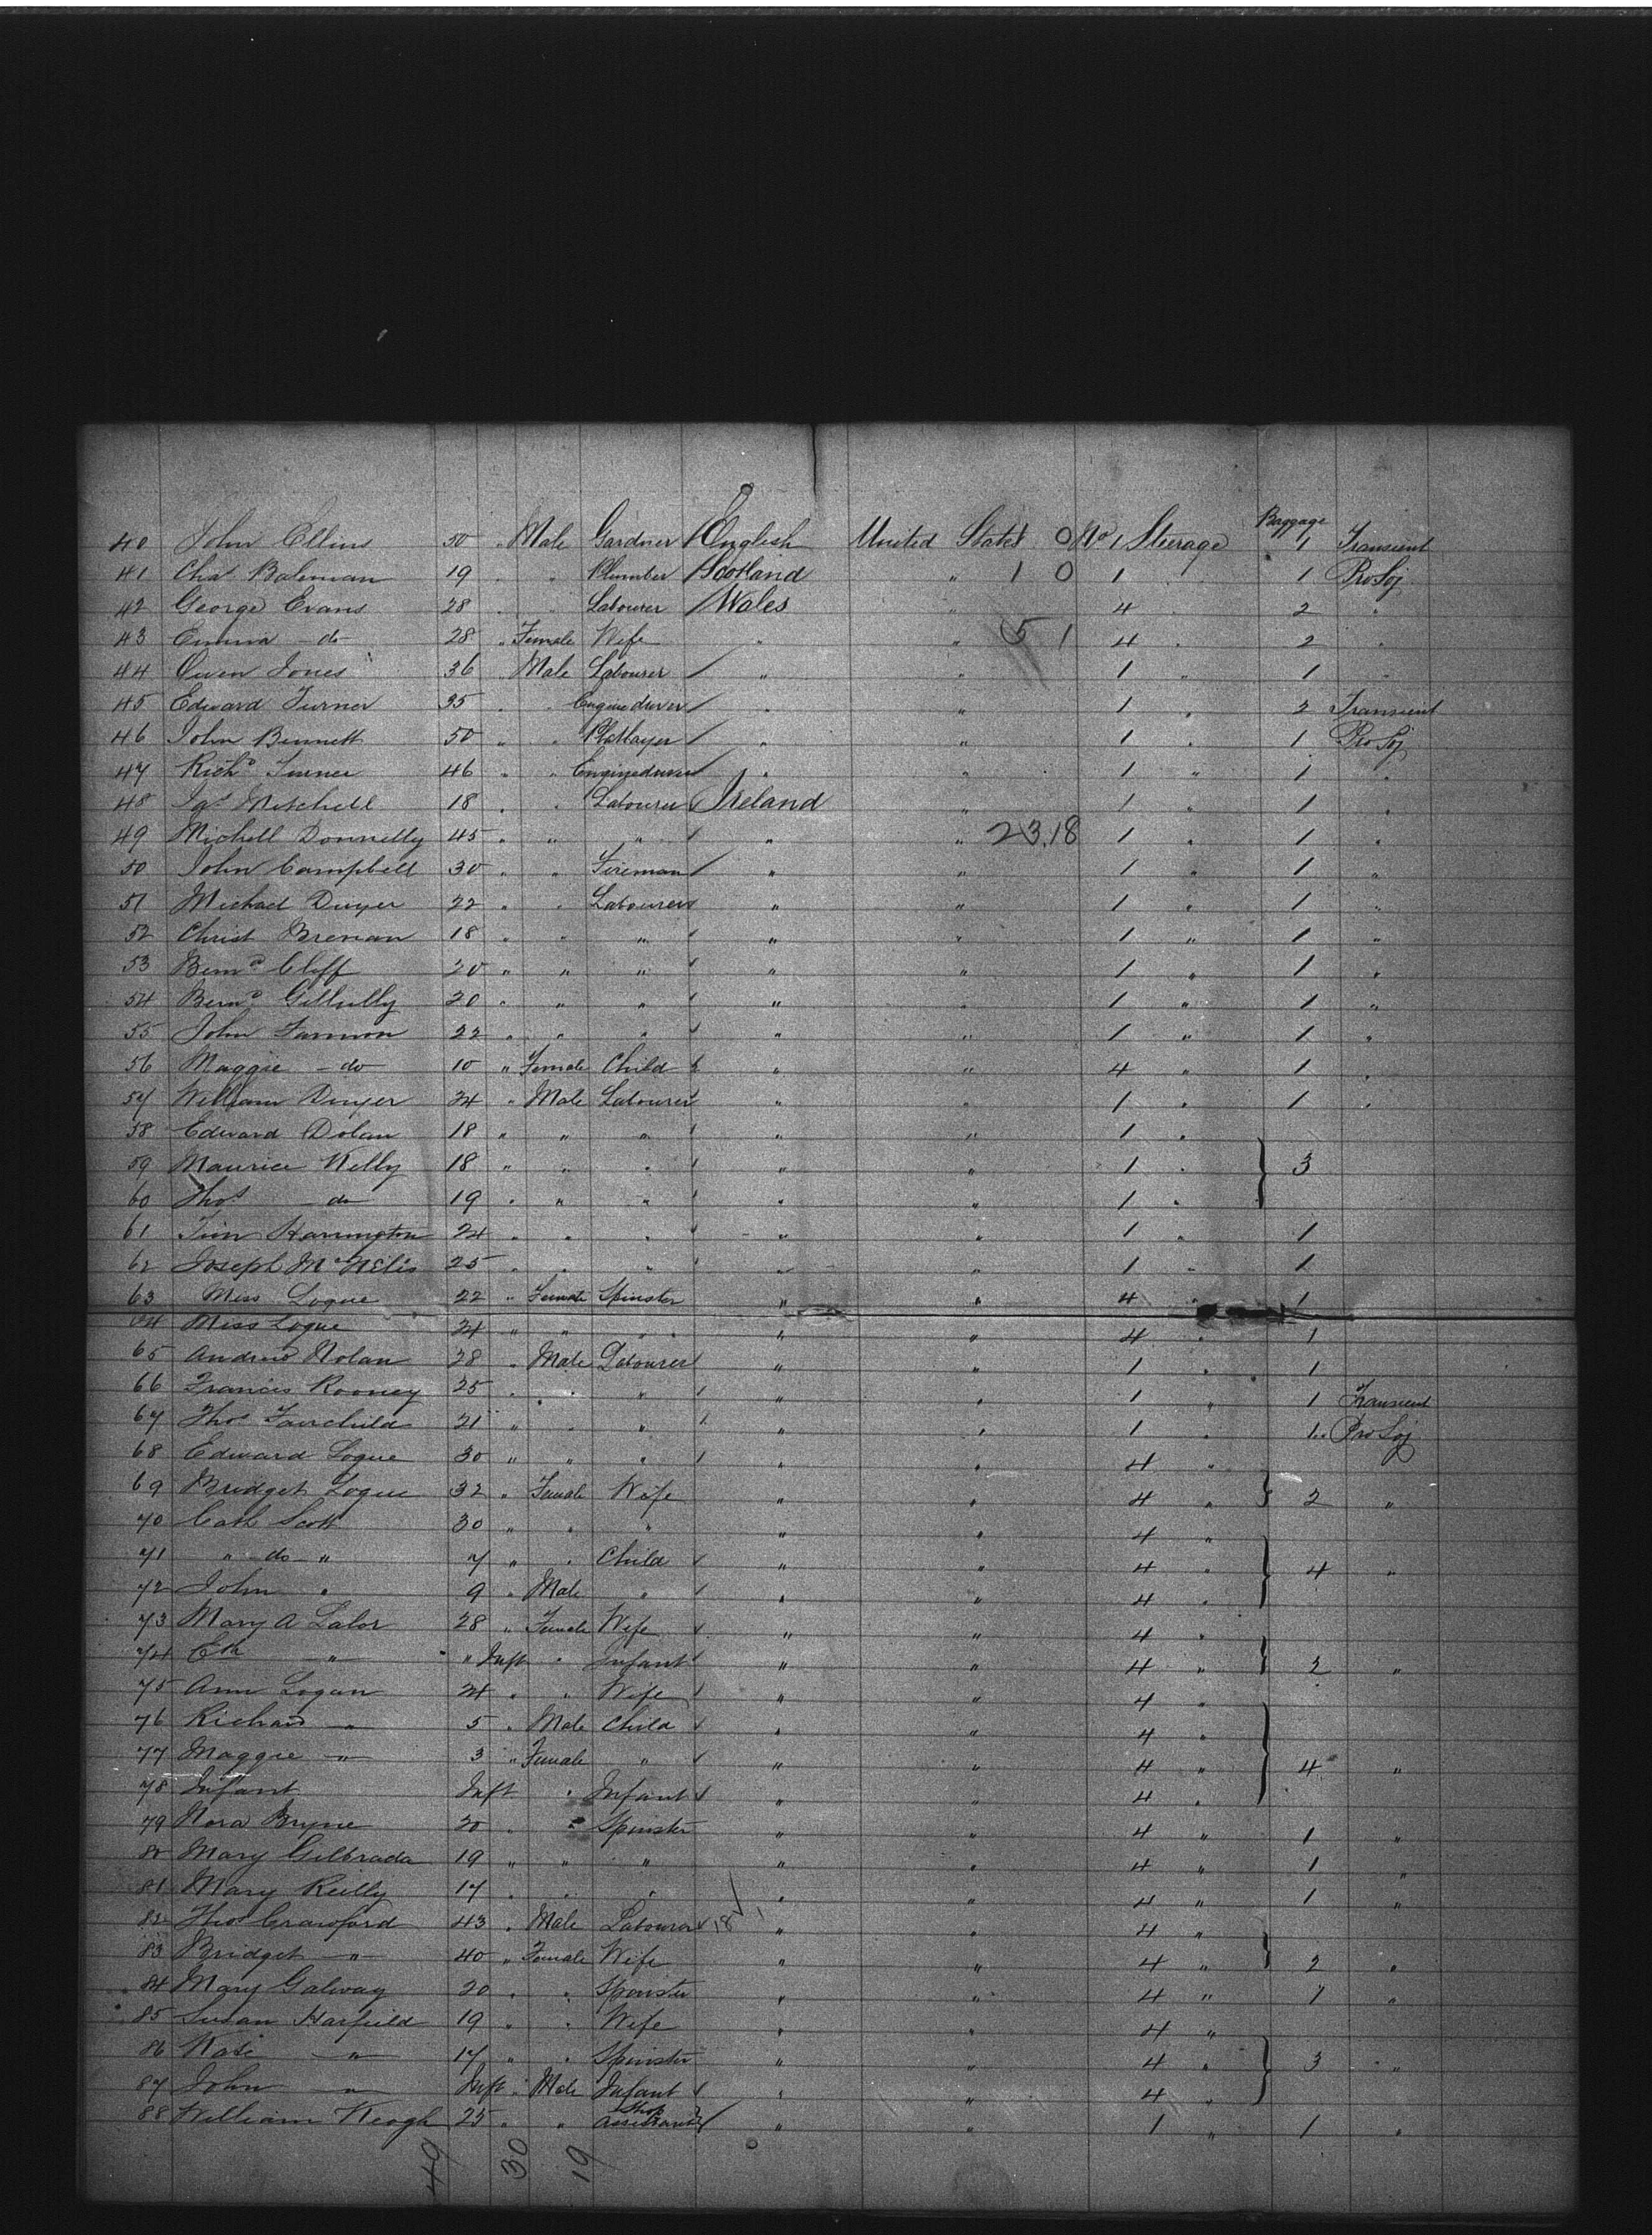 Baggage
40 John Ellins 50 " Male Gardner English United States 1 0 No 1 Steerage 1 Transient
41 Chas Bateman 19 " " Plumber Scotland " 1 0 1 " 1 Pro Soj
42 George Evans 28 " " Labourer Wales " 4 " 2 "
43 Emma do 28 " Female Wife " " 5 1 4 " 2 "
44 Owen Jones 36 " Male Labourer " " 1 " 1 "
45 Edward Turner 35 " " Enginedriver " " 1 " 2 Transient
46 John Bennett 50 " " Platlayer " " 1 " 1 Pro Soj
47 Richd Turner 46 " " Enginedriver " " 1 " 1 "
48 Jas Mitchell 18 " " Labourer Ireland " 1 " 1 "
49 Michell Donnelly 45 " " " " " 23.18 1 " 1 "
50 John Campbell 30 " " Fireman " " 1 " 1 "
51 Michael Dwyer 22 " " Labourer " " 1 " 1 "
52 Christ Brenan 18 " " " " " 1 " 1 "
53 Bernd Cliff 20 " " " " " 1 " 1 "
54 Bernd 20 " " " " " 1 " 1 "
55 John Farmon 22 " " " " " 1 " 1 "
56 Maggie do 10 " Female Child " " 4 " 1 "
57 William Dwyer 24 " Male Labourer " " 1 " 1 "
58 Edward Dolan 18 " " " " " 1 "
59 Maurice Kelly 18 " " " " " 1 " 3
60 Thos do 19 " " " " " 1 "
61 Tim Harrington 24 " " " " " 1 " 1
62 Joseph McNelis 25 " " " " " 1 " 1
63 Miss Logue 22 " Female Spinster " " 4 " 1
64 Miss Logue 24 " " " " " 4 " 1
65 Andrew Nolan 28 " Male Labourer " " 1 " 1
66 Francis Rooney 25 " " " " " 1 " 1 Transient
67 Thos Fairchild 21 " " " " " 1 " 1 Pro Soj
68 Edward Logue 30 " " " " " 4 "
69 Bridget Logue 32 " Female Wife " " 4 " 2 "
70 Cath Scott 30 " " " " " 4 "
71 " do " 7 " " Child " " 4 " 4 "
72 John " 9 " Male " " " 4 "
73 Mary A Lalor 28 " Female Wife " " 4 "
74 Eth " " Inft " Infant " " 4 " 2 "
75 Ann Logan 24 " " Wife " " 4 "
76 Richard " 5 " Male Child " " 4 "
77 Maggie " 3 " Female " " " 4 " 4 "
78 Infant Inft " Infant " " 4 "
79 Nora Bryne 20 " " Spinster " " 4 " 1 "
80 Mary Gilbrada 19 " " " " " 4 " 1 "
81 Mary Reilly 17 " " " " " 4 " 1 "
82 Thos Crawford 43 " Male Labourer 18 " " 4 "
83 Bridget " 40 " Female Wife " " 4 " 2 "
84 Mary Galway 20 " " Spinster " " 4 " 1 "
85 Susan Harfield 19 " " Wife " " 4 "
86 Kate " 17 " " Spinster " " 4 " 3 "
87 John " Inft " Male Infant " " 4 "
88 William Keogh 25 " " Shop Assistant " " 1 " 1 "
49 30 19